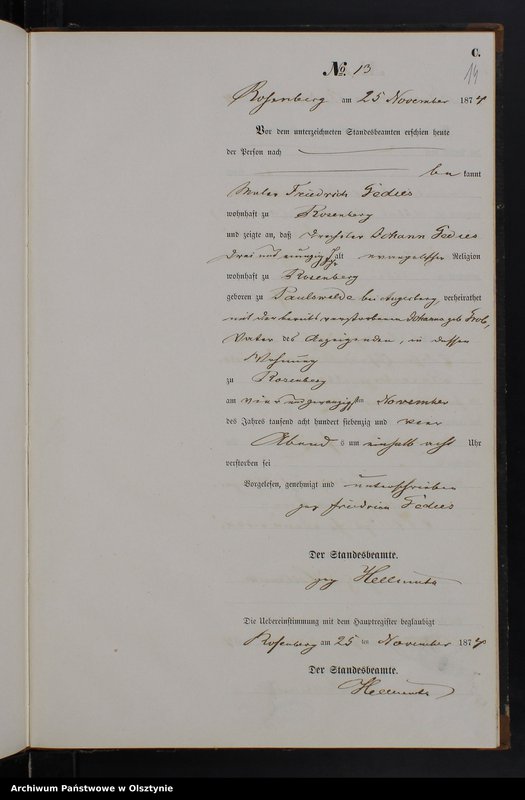 C.
No. 13
14
Rosenberg am 25 November 1874
Vor dem unterzeichneten Standesbeamten erschien heute
der Person nach
bekannt
Maler Friedrich Gedies
wohnhaft zu Rosenberg
und zeigte an, daß Drechsler Johann Gedies
drei und Jahr alt evangelischer Religion
wohnhaft zu Rosenberg
geboren zu Paulswalde bei Angerburg, verheirathet
mit der bereits verstorbenen Johanna geb
Vater des Anzeigenden, in dessen
Wohnung
zu Rosenberg
am vier und zwanzigsten November
des Jahres tausend acht hundert siebenzig und vier
Abends um einhalb acht Uhr
verstorben sei
Vorgelesen, genehmigt und unterschrieben
gez Friedrich Gedies
Der Standesbeamte.
gez
Die Uebereinstimmung mit dem Hauptregister beglaubigt
Rosenberg am 25 ten November 1874
Der Standesbeamte.
Archiwum Państwowe w Olsztynie